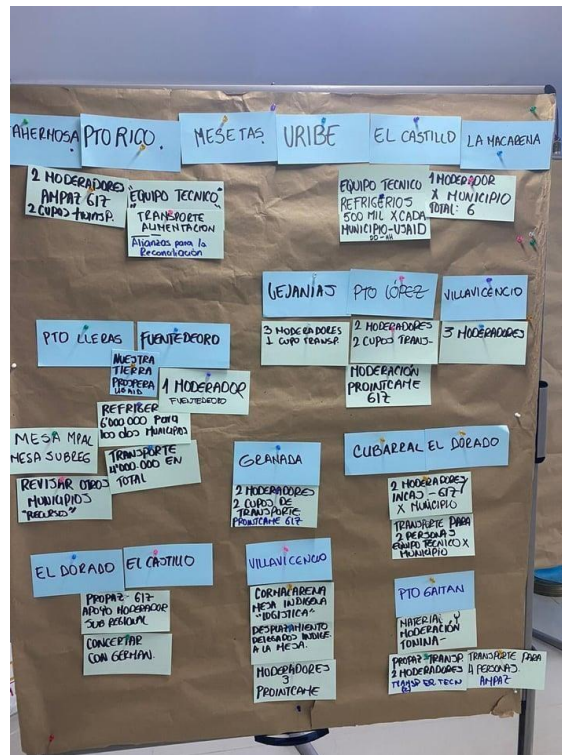 AHERMOSA
PTO RICO.
MESETAS.
URIBE
EL CASTILLO
LA MACARENA
2 MODERADORES
AMPAZ 617
2 CUPOS transp.
"EQUIPO TECNICO"
TRANSPORTE
ALIMENTACION
Alianzas para la
Reconciliación
EQUIPO TECNICO
REFRIGERIOS
500 MIL X CADA
MUNICIPIO-USAID
1 MODERADOR
X MUNICIPIO
TOTAL: 6
LEJANIAS
PTO LÓPEZ
VILLAVICENCIO
3 MODERADORES
1 CUPO TRANSP.
2 MODERADORES
2 CUPOS TRANS-
3 MODERADORES
MODERACIÓN
PROINTCAME
617
PTO LLERAS
FUENTEDEORO
NUESTRA
TIERRA
PROSPERA
USAID
1 MODERADOR
FUENTEDEORO
REFRIGER
6'000.000 Para
los dos MUNICIPIOS
TRANSPORTE
4'000.000 EN
TOTAL
MESA MPAL
MESA SUBREG
REVISAR OTROS
MUNICIPIOS
"RECURSOS"
GRANADA
2 MODERADORES
2 CUPOS DE
TRANSPORTE
PROINTCAME 617
CUBARRAL
EL DORADO
2 MODERADORES
INCAS - 617
X MUNICIPIO
TRANSPORTE PARA
2 PERSONAS
EQUIPO TECNICO X
MUNICIPIO
EL DORADO
EL CASTILLO
PROPAZ - 617
APOYO MODERADOR
SUB REGIONAL
CONCERTAR
CON GERMAN.
VILLAVICENCIO
CORMACARENA
MESA INDIGENA
"LOGISTICA"
DESPLAZAMIENTO
DELEGADOS INDIGE.
A LA MESA.
MODERADORES
3
PROINTCAME
PTO GAITAN
MATERIAL Y
MODERACIÓN
TONINA-
PROPAZ TRANSP.
2 MODERADORES
TRANSPORTE PARA
4 PERSONAS.
AMPAZ